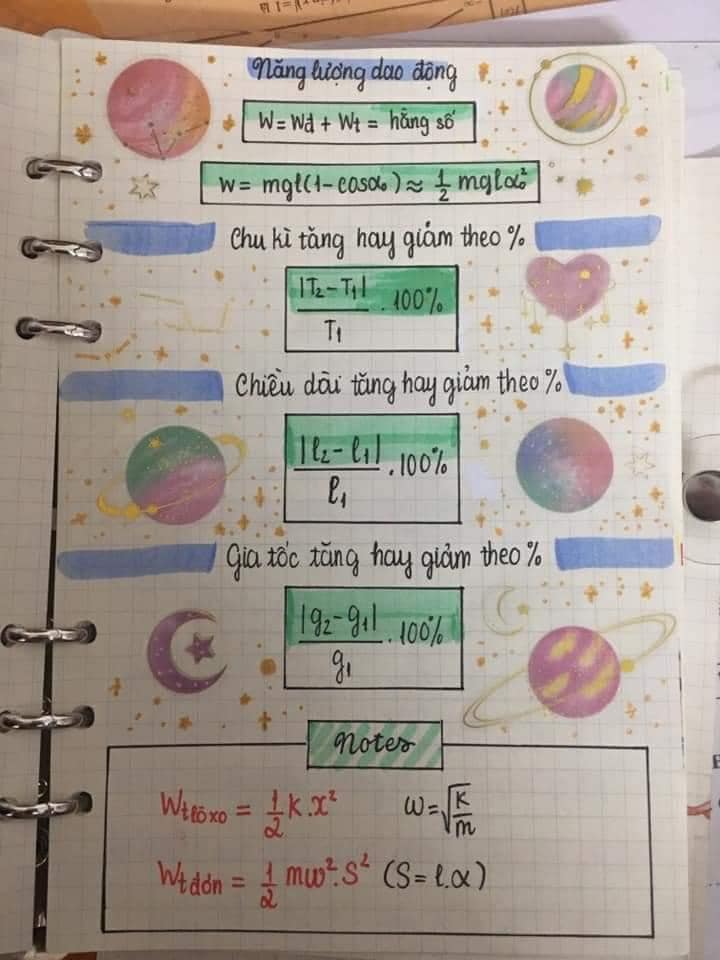 Năng lượng dao động
W = Wđ + Wt = hằng số
W = mgl(1-cosα₀) ≈ 1/2 mglα₀²
Chu kì tăng hay giảm theo %
|T₂-T₁|/T₁ . 100%
Chiều dài tăng hay giảm theo %
|l₂-l₁|/l₁ . 100%
Gia tốc tăng hay giảm theo %
|g₂-g₁|/g₁ . 100%
Notes
Wt lò xo = 1/2 k.x² ω = √(k/m)
Wt đơn = 1/2 mω².S² (S = l.α)